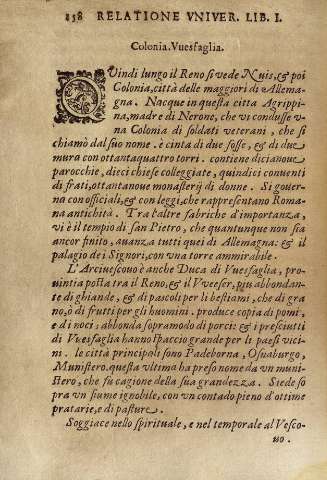 258 RELATIONE VNIVER. LIB. I.
Colonia. Vuesfaglia.
QVindi lungo il Reno si vede Nuis, & poi
Colonia, città delle maggiori di Allema-
gna. Nacque in questa città Agrippi-
na, madre di Nerone, che vi condusse v-
na Colonia di soldati veterani, che si
chiamò dal suo nome. è cinta di due fosse, & di due
mura con ottantaquattro torri. contiene dicianoue
parocchie, dieci chiese collegiate, quindici conuenti
di frati, ottantanoue monasterij di donne. Si gouer-
na con officiali, & con leggi, che rappresentano Roma-
na antichità. Tra l'altre fabriche d'importanza,
vi è il tempio di san Pietro, che quantunque non sia
ancor finito, auanza tutti quei di Allemagna: & il
palagio de i Signori, con vna torre ammirabile.
L'Arciuescouo è anche Duca di Vuesfaglia, pro-
uintia posta tra il Reno, & il Vueser, piu abbondan-
te di ghiande, & di pascoli per li bestiami, che di gra-
no, ò di frutti per gli huomini. produce copia di pomi,
e di noci: abbonda sopramodo di porci: & i presciutti
di Vuesfaglia hanno spaccio grande per li paesi vici-
ni. le città principali sono Padeborna, Osnaburgo,
Munistero. questa vltima ha preso nome da vn muni-
stero, che fu cagione della sua grandezza. Siede so
pra vn fiume ignobile, con vn contado pieno d'ottime
pratarie, e di pasture.
Soggiace nello spirituale, e nel temporale al Vesco-
uo.